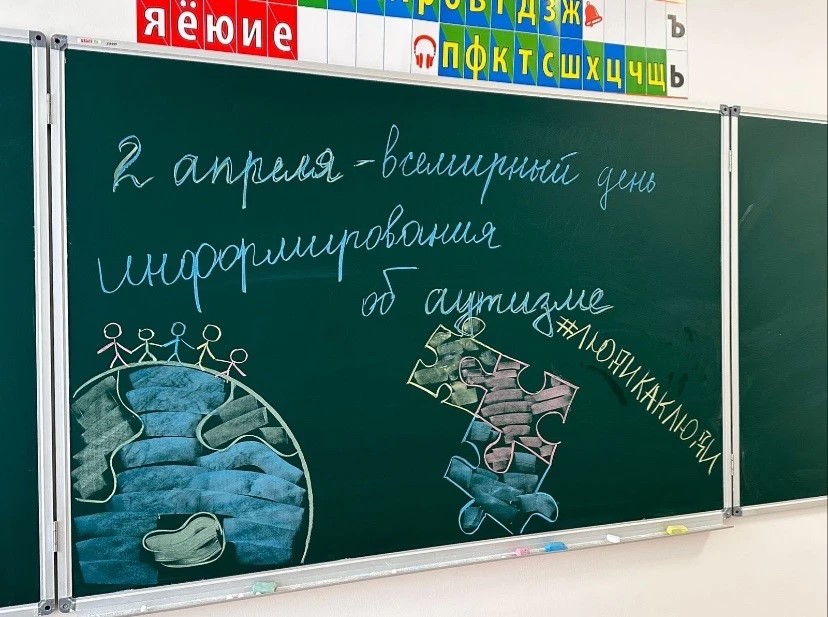 я ё ю и е
д з ж ъ
п ф к т с ш х ц ч щ ь
2 апреля - всемирный день
информирования
об аутизме
#ЛЮДИКАКЛЮДИ